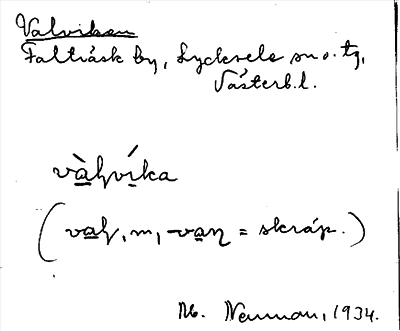 Valviken
Falträsk by, Lycksele sn o. tg,
Västerb. l.
vàḷvíka
(vaḷ, m, -van = skräp.)
M. Nenman, 1934.